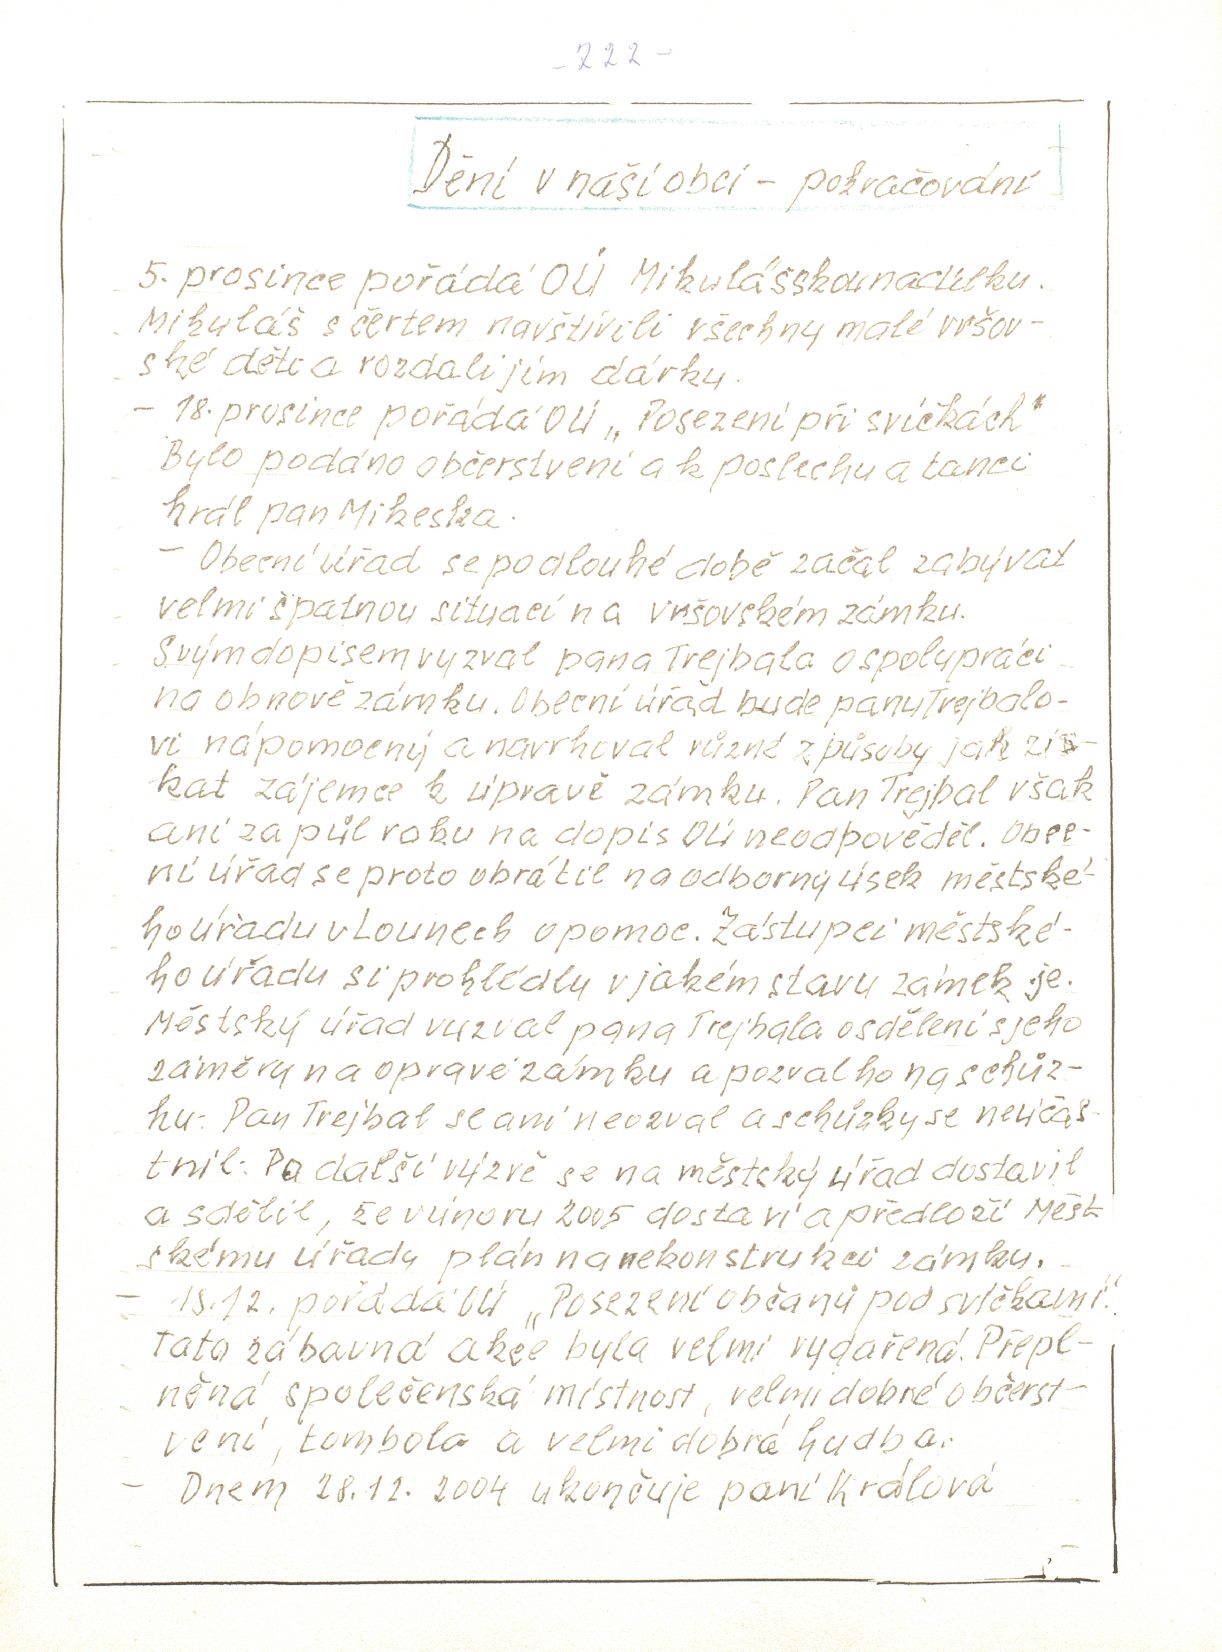 - 222 -
Dění v naší obci - pokračování
5. prosince pořádá OÚ Mikulášskou nadílku.
Mikuláš s čertem navštívili všechny malé vršov-
ské děti a rozdali jim dárky.
- 18. prosince pořádá OÚ „Posezení při svíčkách"
Bylo podáno občerstvení a k poslechu a tanci
hrál pan Mikeska.
- Obecní úřad se po dlouhé době začal zabývat
velmi špatnou situací na vršovském zámku.
Svým dopisem vyzval pana Trejbala o spolupráci
na obnově zámku. Obecní úřad bude panu Trejbalo-
vi nápomocný a navrhoval různé způsoby jak zís-
kat zájemce k úpravě zámku. Pan Trejbal však
ani za půl roku na dopis OÚ neodpověděl. Obec-
ní úřad se proto obrátil na odborný úsek městské-
ho úřadu v Lounech o pomoc. Zástupci městské-
ho úřadu si prohlédly v jakém stavu zámek je.
Městský úřad vyzval pana Trejbala o sdělení s jeho
záměry na opravě zámku a pozval ho na schůz-
ku. Pan Trejbal se ani neozval a schůzky se neúčas-
tnil. Po další výzvě se na městský úřad dostavil
a sdělil, že v únoru 2005 dostaví a předloží Měst
skému úřadu plán na rekonstrukci zámku.
- 18.12. pořádá OÚ „Posezení občanů pod svíčkami".
Tato zábavná akce byla velmi vydařená. Přepl-
něná společenská místnost, velmi dobré občerst-
vení, tombola a velmi dobrá hudba.
- Dnem 28.12. 2004 ukončuje paní Králová